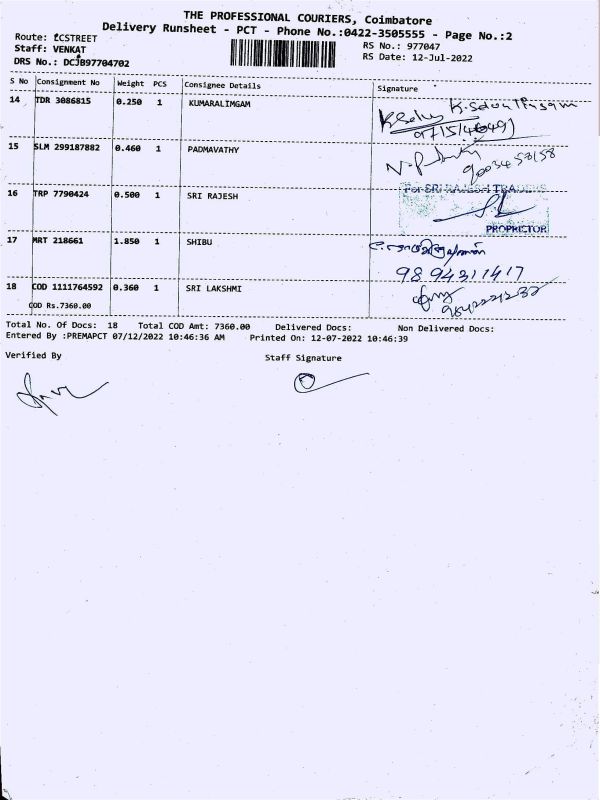 THE PROFESSIONAL COURIERS, Coimbatore
Delivery Runsheet - PCT - Phone No.:0422-3505555 - Page No.:2
Route: ECSTREET
Staff: VENKAT
DRS No.: DCJB97704702
RS No.: 977047
RS Date: 12-Jul-2022
S No Consignment No Weight PCS Consignee Details Signature
14 TDR 3086815 0.250 1 KUMARALIMGAM
15 SLM 299187882 0.460 1 PADMAVATHY
16 TRP 7790424 0.500 1 SRI RAJESH
For SRI RAJESH TRADERS
PROPRIETOR
17 MRT 218661 1.850 1 SHIBU
9894311417
18 COD 1111764592 0.360 1 SRI LAKSHMI
COD Rs.7360.00
Total No. Of Docs: 18 Total COD Amt: 7360.00 Delivered Docs: Non Delivered Docs:
Entered By :PREMAPCT 07/12/2022 10:46:36 AM Printed On: 12-07-2022 10:46:39
Verified By Staff Signature